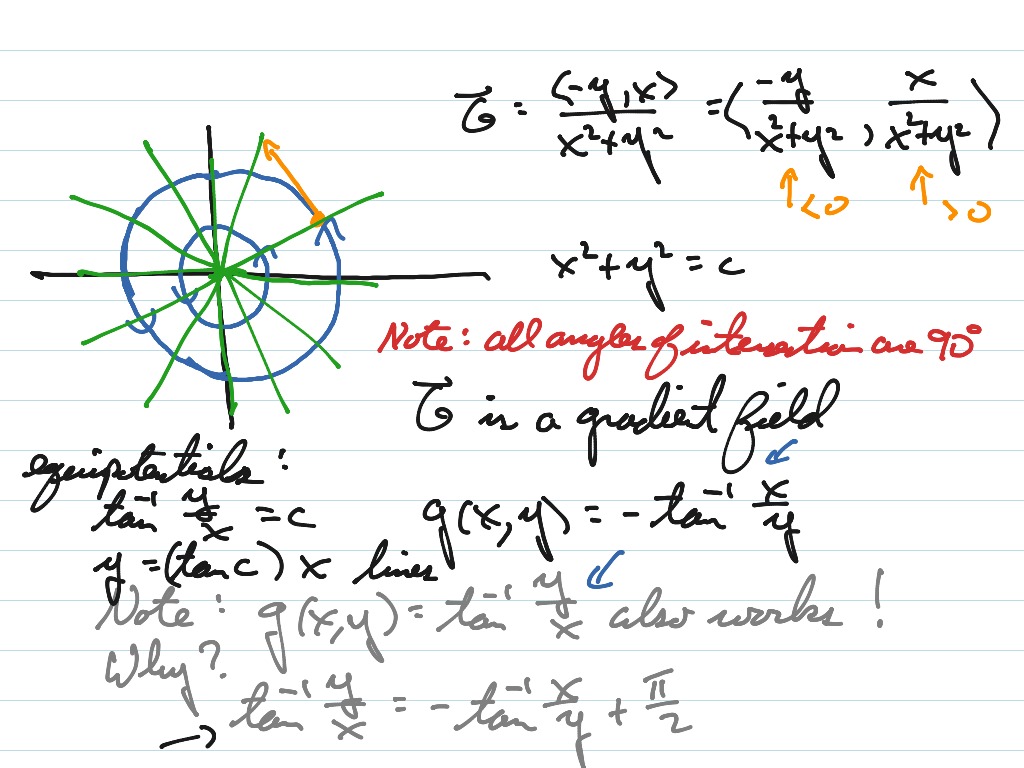 G⃗ = ⟨-y, x⟩ / (x² + y²) = ⟨ -y / (x² + y²), x / (x² + y²) ⟩
↑ < 0 ↑ > 0
x² + y² = c
Note: all angles of intersection are 90°
G⃗ is a gradient field
equipotentials:
tan⁻¹ y/x = c
g(x, y) = - tan⁻¹ x/y
y = (tan c) x lines
Note: g(x, y) = tan⁻¹ y/x also works!
Why?
→ tan⁻¹ y/x = - tan⁻¹ x/y + π/2